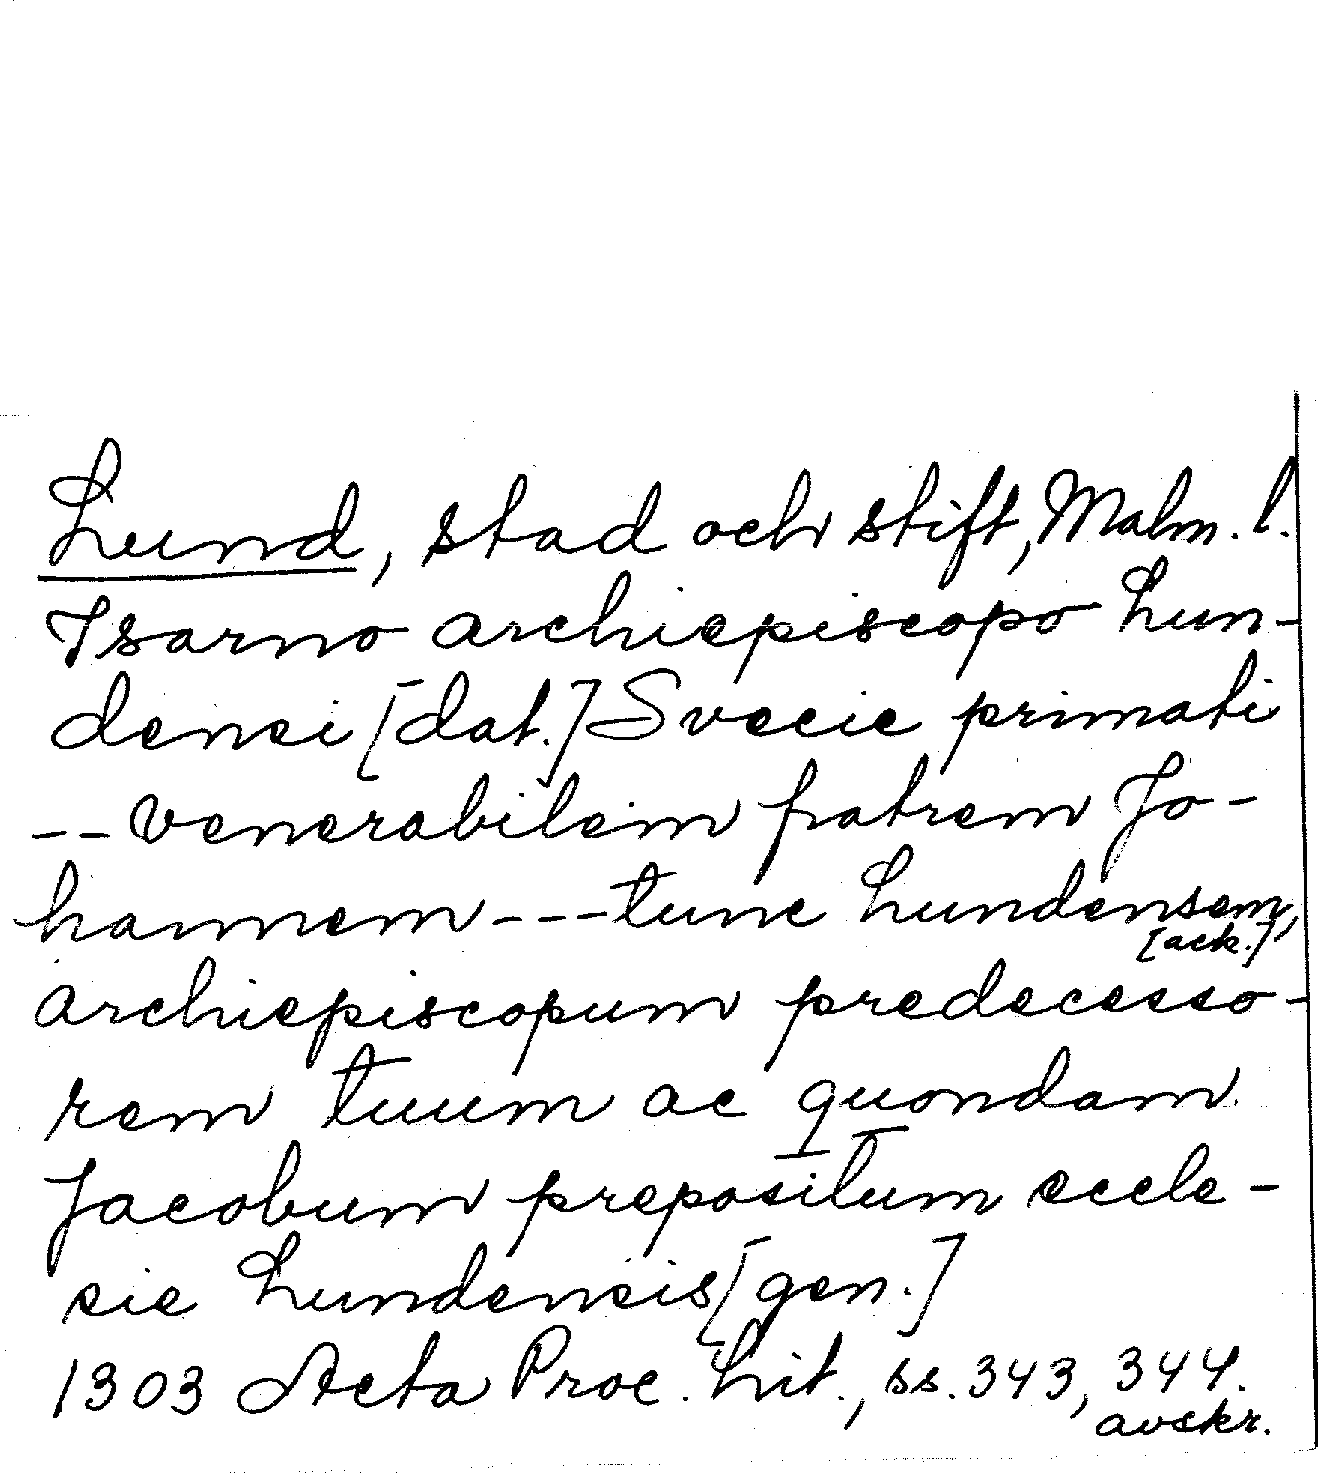 Lund, stad och stift, Malm. l.
Isarno archiepiscopo Lun-
densi [dat.] Svecie primati
-- venerabilem patrem Jo-
hannem --- tunc Lundensem,
[ack.]
archiepiscopum predecesso-
rem tuum ac quondam
Jacobum prepositum eccle-
sie Lundensis [gen.]
1303 Acta Proc. Lit., ss. 343, 344.
avskr.